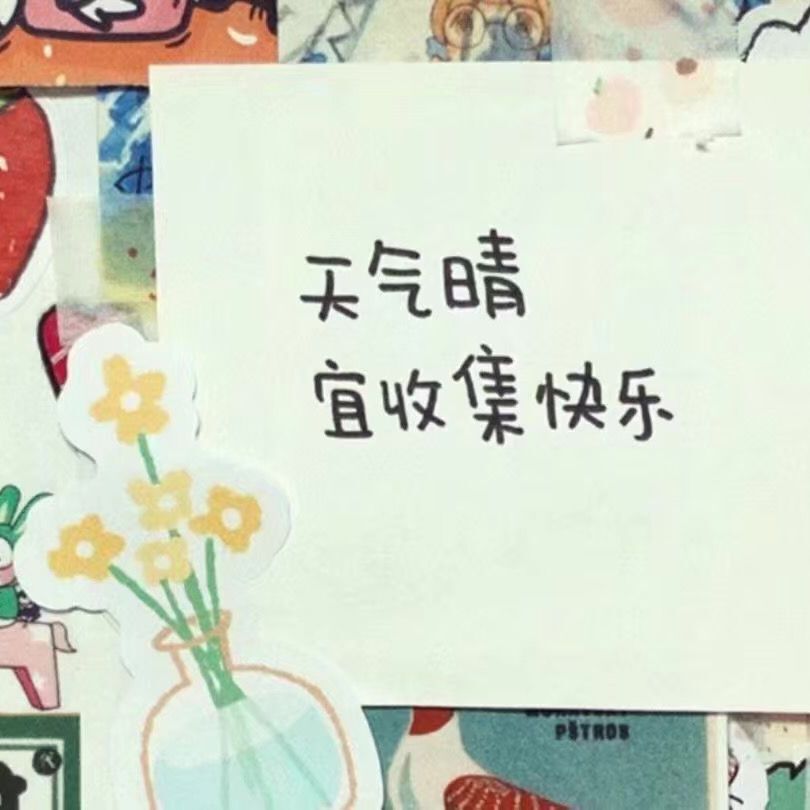 天气晴
宜收集快乐
PŠTROS